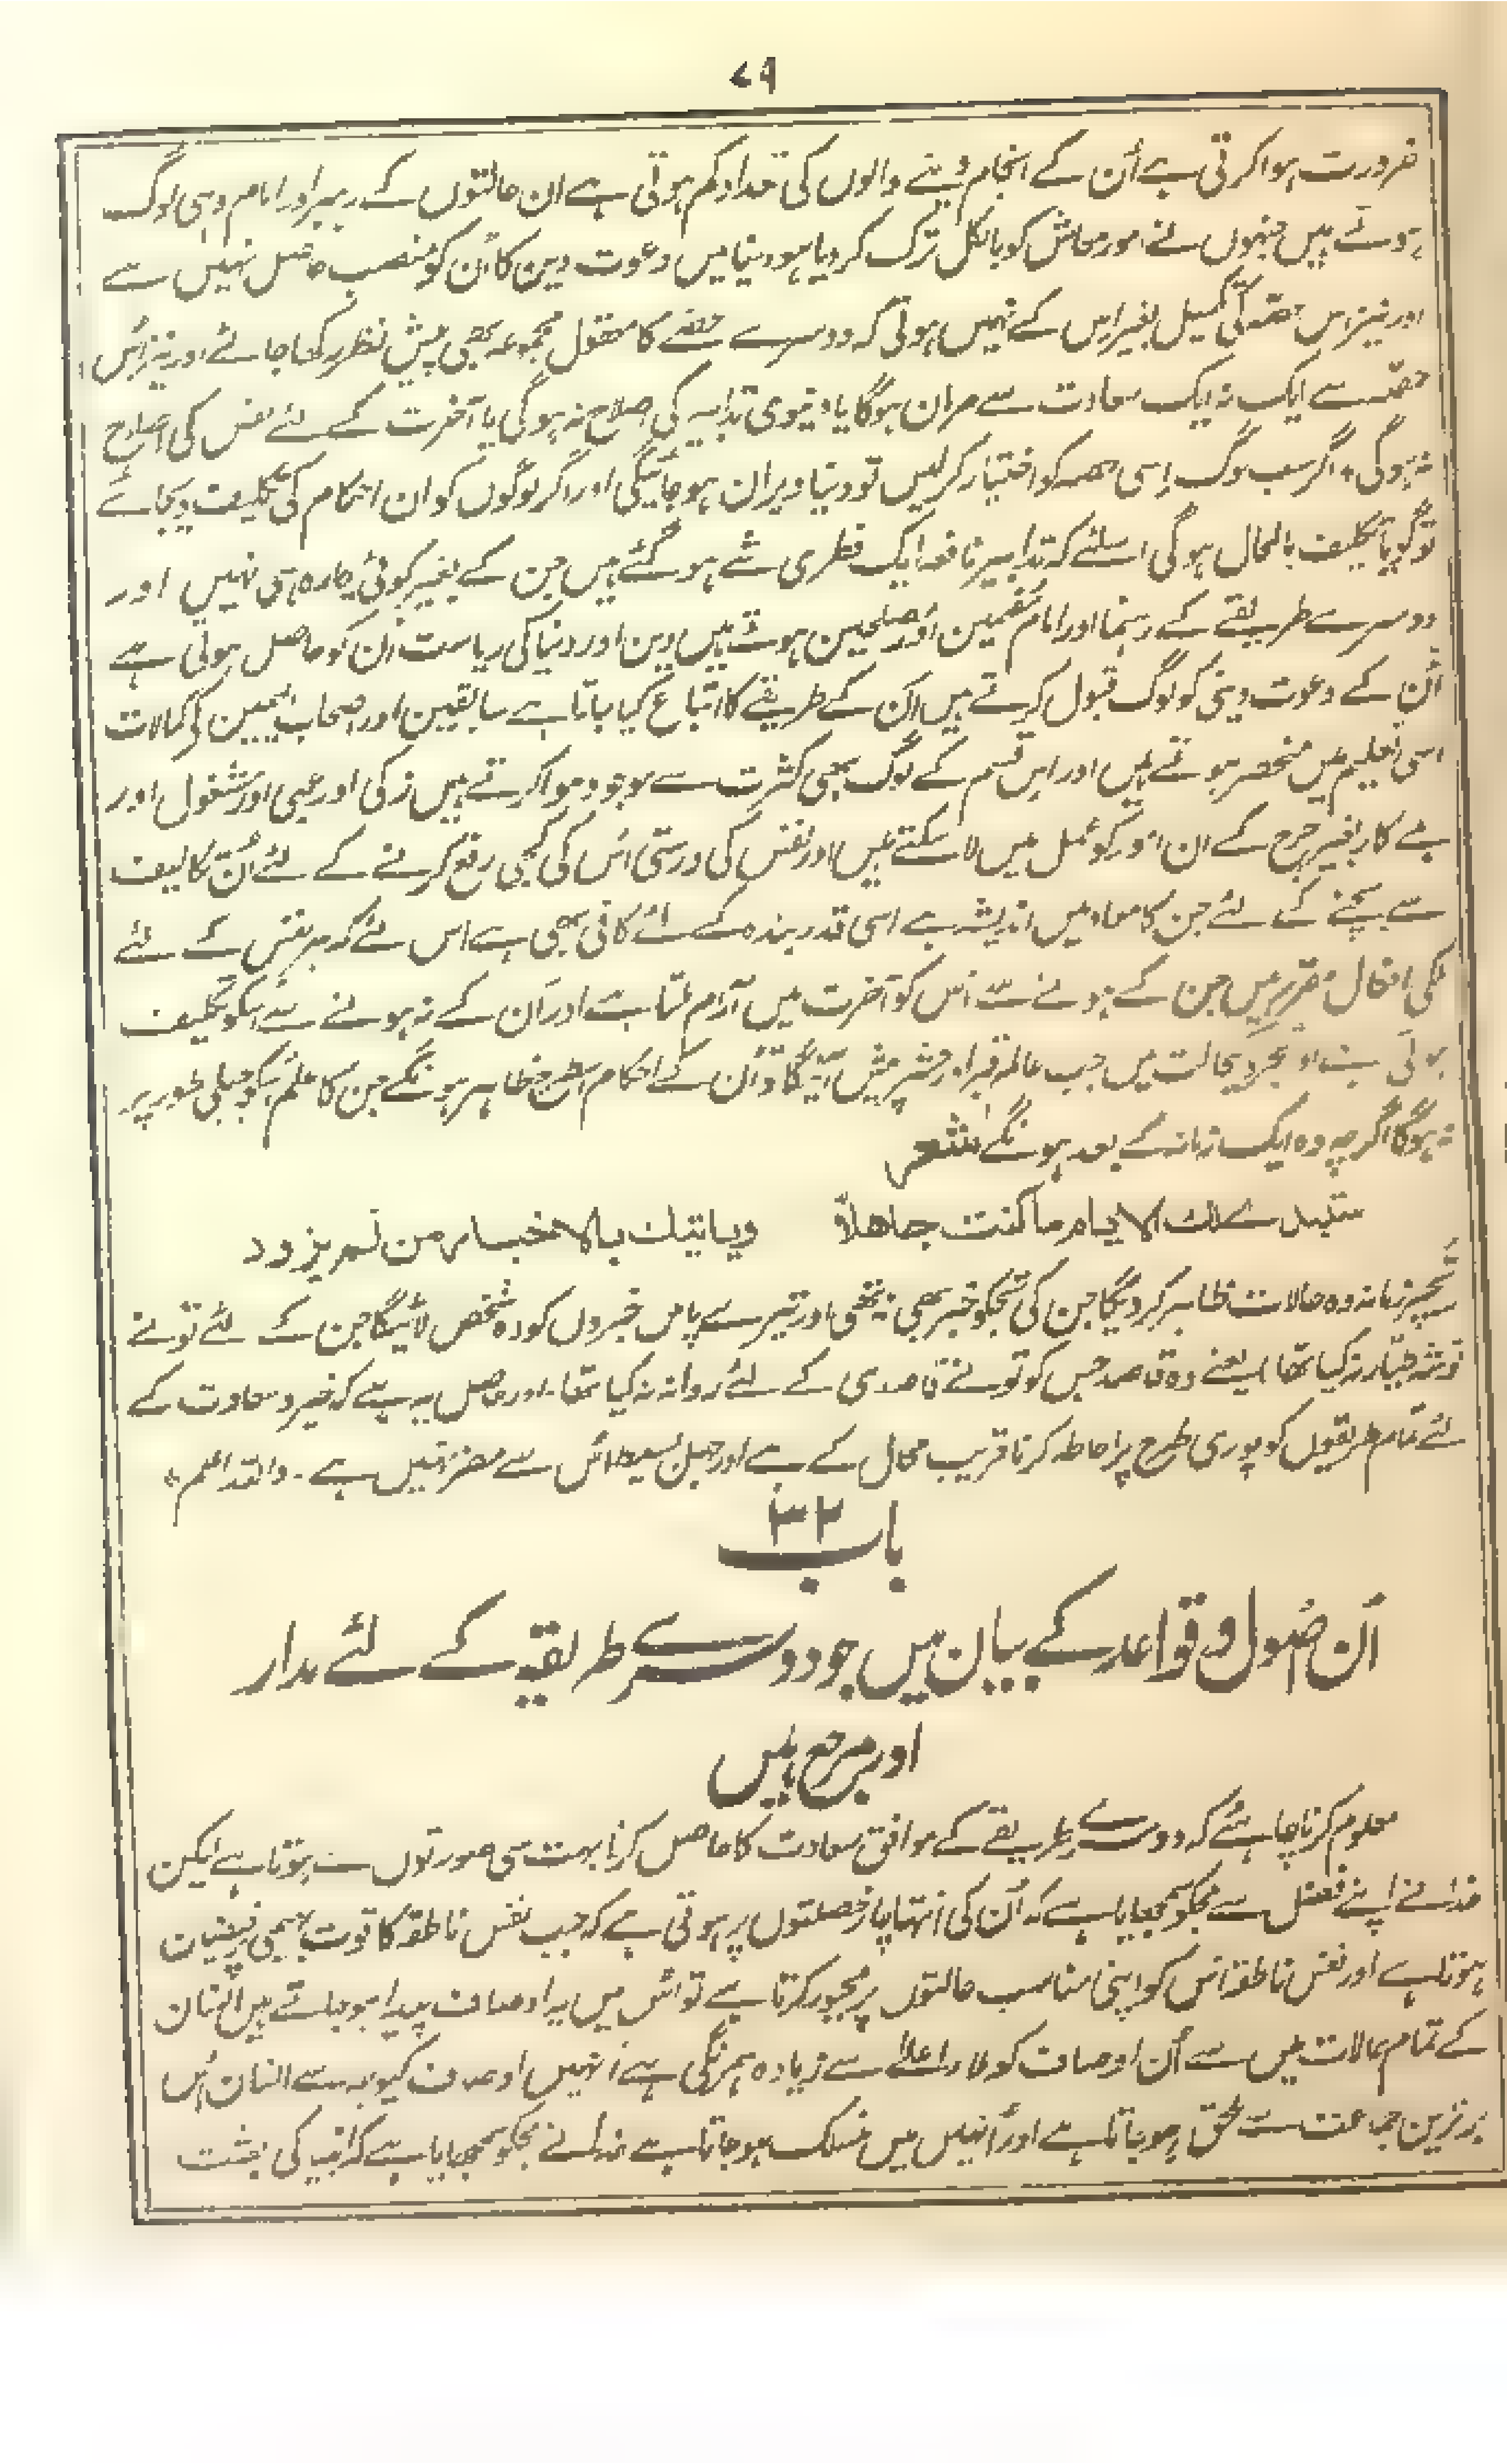 ۷۹
ضرورت ہوا کرتی ہے اُن کے انجام دینے والوں کی تعداد کم ہوتی ہے ان حالتوں کے رہبر اور امام وہی لوگ
ہوتے ہیں جنہوں نے امور معاش کو بالکل ترک کر دیا ہو دنیا میں دعوت دین کا اُن کو منصب حاصل نہیں ہے
اور نیز اس حصہ کی تکمیل بغیر اس کے نہیں ہوتی کہ دوسرے حصے کا معقول مجموعہ بھی پیش نظر رکھا جائے اور نیز اُس
حصہ سے ایک نہ ایک سعادت سے حرمان ہوگا یا دنیوی تدابیر کی اصلاح نہ ہوگی یا آخرت کے لئے نفس کی اصلاح
نہ ہوگی، اگر سب لوگ اِسی حصہ کو اختیار کر لیں تو دنیا ویران ہو جائیگی اور اگر لوگوں کو ان احکام کی تکلیف دیجائے
تو گویا تکلیف بالمحال ہوگی اسلئے کہ تدابیر نافعہ ایک فطری شے ہو گئے ہیں جن کے بغیر کوئی چارہ ہی نہیں اور
دوسرے طریقے کے رہنما اور امام مفہمین اور مصلحین ہوتے ہیں دین اور دنیا کی ریاست اُن کو حاصل ہوتی ہے
اُن کے دعوت دینی کو لوگ قبول کرتے ہیں اُن کے طریقے کا اتباع کیا جاتا ہے سابقین اور اصحاب یمین کے کمالات
اسی تعلیم میں منحصر ہوتے ہیں اور اس قسم کے لوگ بھی کثرت سے موجود ہوا کرتے ہیں زکی اور غبی اور مشغول اور
بے کار بغیر حرج کے ان امور کو عمل میں لا سکتے ہیں اور نفس کی درستی اُس کی کجی رفع کرنے کے لئے اُن تکالیف
سے بچنے کے لئے جن کا معاد میں اندیشہ ہے اسی قدر بندہ کے لئے کافی بھی ہے اس لئے کہ ہر نفس کے لئے
ملکی افعال مقرر ہیں جن کے ہونے سے اُس کو آخرت میں آرام ملتا ہے اور اُن کے نہ ہونے سے اُسکو تکلیف
ہوتی ہے اور تجرد کی حالت میں جب عالم قبر اور حشر پیش آئیگا تو اُن کے احکام اسطرح ظاہر ہونگے جن کا علم اُسکو جبلی طور پر
نہ ہوگا اگرچہ وہ ایک زمانہ کے بعد ہونگے شعر
ستبدى لك الايام ما كنت جاهلاً وياتيك بالاخبار من لم يزود
تجھ پر زمانہ وہ حالات ظاہر کر دیگا جن کی تجکو خبر بھی نہ تھی اور تیرے پاس خبروں کو وہ شخص لائیگا جن کے لئے تو نے
توشہ طیار نہ کیا تھا یعنے وہ قاصد جس کو تو نے قاصدی کے لئے روانہ نہ کیا تھا، اور حاصل یہ ہے کہ خیر و سعادت کے
لئے تمام طریقوں کو پوری طرح پر احاطہ کرنا قریب محال کے ہے اور جہل بسیط اُس سے مضر نہیں ہے۔ واللہ اعلم
باب ۳۲
اُن اصول و قواعد کے بیان میں جو دوسرے طریقہ کے لئے مدار
اور مرجع ہیں
معلوم کرنا چاہئے کہ دوسرے طریقے کے موافق سعادت کا حاصل کرنا بہت سی صورتوں سے ہوتا ہے لیکن
خدا نے اپنے فضل سے مجکو سمجھایا ہے کہ اُن کی انتہا چار خصلتوں پر ہوتی ہے کہ جب نفس ناطقہ کا قوت بہیمی پر فیضان
ہوتا ہے اور نفس ناطقہ اُس کو اپنی مناسب حالتوں پر مجبور کرتا ہے تو اُس میں یہ اوصاف پیدا ہو جاتے ہیں انسان
کے تمام حالات میں سے اُن اوصاف کو ملاء اعلےٰ سے زیادہ ہمرنگی ہے اُنہیں اوصاف کیوجہ سے انسان اُس
برترین جماعت سے ملحق ہو جاتا ہے اور اُنہیں میں منسلک ہو جاتا ہے خدا نے مجکو سمجھایا ہے کہ انبیا کی بعثت